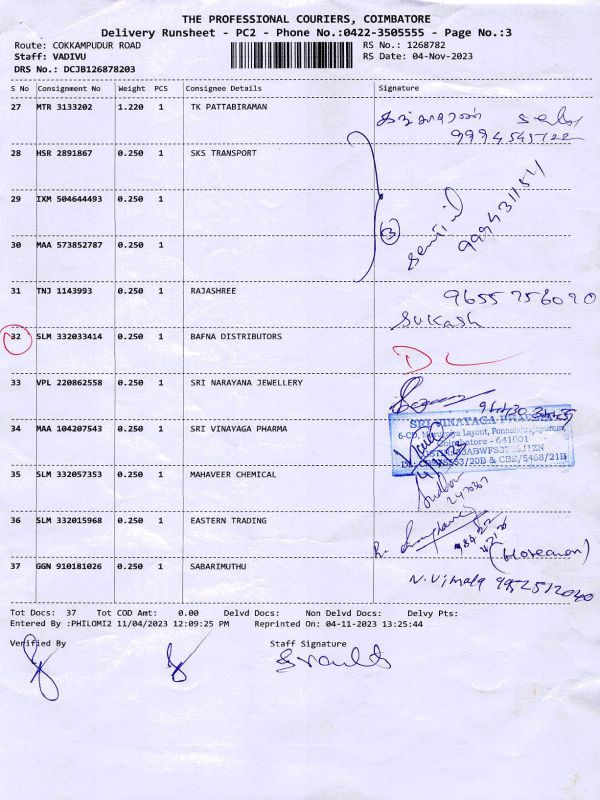 THE PROFESSIONAL COURIERS, COIMBATORE
Delivery Runsheet - PC2 - Phone No.:0422-3505555 - Page No.:3
Route: COKKAMPUDUR ROAD RS No.: 1268782
Staff: VADIVU RS Date: 04-Nov-2023
DRS No.: DCJB126878203
S No Consignment No Weight PCS Consignee Details Signature
27 MTR 3133202 1.220 1 TK PATTABIRAMAN
28 HSR 2891867 0.250 1 SKS TRANSPORT
29 IXM 504644493 0.250 1
30 MAA 573852787 0.250 1
3
31 TNJ 1143993 0.250 1 RAJASHREE 9655756070
Sukash
32 SLM 332033414 0.250 1 BAFNA DISTRIBUTORS DL
33 VPL 220862558 0.250 1 SRI NARAYANA JEWELLERY
SRI VINAYAGA
34 MAA 104207543 0.250 1 SRI VINAYAGA PHARMA
Coimbatore - 641001
& CBE/5468/21B
35 SLM 332057353 0.250 1 MAHAVEER CHEMICAL
36 SLM 332015968 0.250 1 EASTERN TRADING
37 GGN 910181026 0.250 1 SABARIMUTHU N. Vimala 9952512040
Tot Docs: 37 Tot COD Amt: 0.00 Delvd Docs: Non Delvd Docs: Delvy Pts:
Entered By :PHILOMI2 11/04/2023 12:09:25 PM Reprinted On: 04-11-2023 13:25:44
Verified By Staff Signature